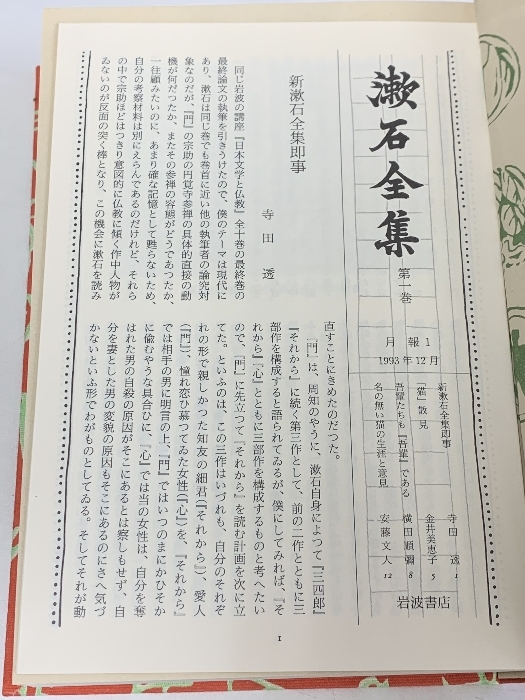 漱石全集
第一巻
月報1
1993年12月
新漱石全集即事 寺田透 1
『猫』散見 金井美恵子 5
吾輩たちも『吾輩』である 横田順彌 8
名の無い猫の生涯と意見 安藤文人 12
岩波書店
新漱石全集即事
寺田 透
同じ岩波の講座『日本文学と仏教』全十巻の最終巻の
最終論文の執筆を引きうけたので、僕のテーマは現代に
あり、漱石は同じ巻でも巻首に近い他の執筆者の論究対
象なのだが、『門』の宗助の円覚寺参禅の具体的直接の動
機が何だつたか、またその参禅の容態がどうであつたか、
一往顧みたいのに、あまり確な記憶として甦らないため、
自分の考察材料は別にえらんであるのだけれど、それら
の中で宗助ほどはつきり意図的に仏教に傾く作中人物が
ゐないのが反面の突く棒となり、この機会に漱石を読み
直すことにきめたのだつた。
『門』は、周知のやうに、漱石自身によつて『三四郎』
『それから』に続く第三作として、前の二作とともに三
部作を構成すると語られてゐるが、僕にしてみれば、『そ
れから』『心』とともに三部作を構成するものと考へたい
ので、『門』に先立つて『それから』を読む計画を次に立
てた。といふのは、この三作はいづれも、自分のそれぞ
れの形で親しかつた知友の細君(『それから』)、愛人
(『門』)、憧れ恋ひ慕つてゐた女性(『心』)を、『それから』
では相手の男に明言の上、『門』ではいつのまにかひそか
に偸むやうな具合ひに、『心』では当の女性は、自分を奪
はれた男の自殺の原因がそこにあるとは察しもせず、自
分を妻とした男の変貌の原因もそこにあるのにさへ気づ
かないといふ形でわがものとしてゐる。そしてそれが動
1